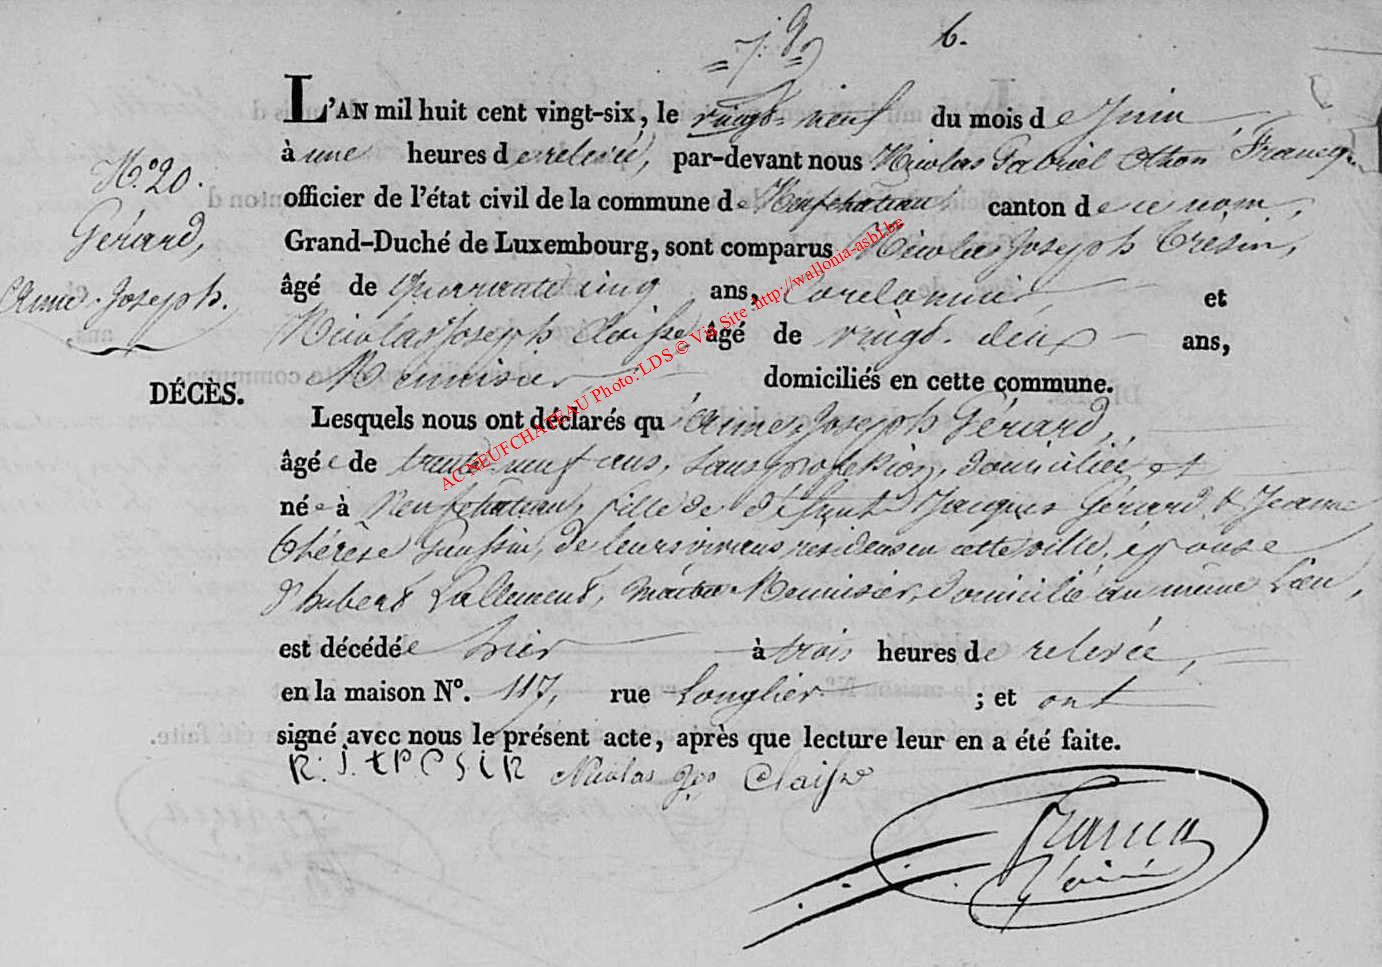 6.
L'AN mil huit cent vingt-six, le vingt-neuf du mois de Juin
à une heures de relevée, par-devant nous Nicolas Gabriel Othon Francq
officier de l'état civil de la commune de Neufchateau canton de ce nom,
Grand-Duché de Luxembourg, sont comparus Nicolas Joseph Tresin,
âgé de Quarante cinq ans, Cordonnier et
Nicolas Joseph Claisse âgé de vingt-deux ans,
Menuisier domiciliés en cette commune.
N.° 20.
Gérard,
Anne-Joseph.
DÉCÈS.
Lesquels nous ont déclarés qu'Anne-Joseph Gérard,
âgée de trente-neuf ans, sans profession, domiciliée et
née à Neufchateau, fille de défunt Jacques Gérard & Jeanne
Thérèse, de leurs vivans residens en cette ville, épouse
d'hubert Lallement, maitre Menuisier, domicilié au même Lieu,
est décédée hier à trois heures de relevée,
en la maison N°. 117, rue Longlier ; et ont
signé avec nous le présent acte, après que lecture leur en a été faite.
Nicolas Jos Claisse
Francq
AC NEUFCHATEAU Photo: LDS © Via Site : http://wallonia-asbl.be